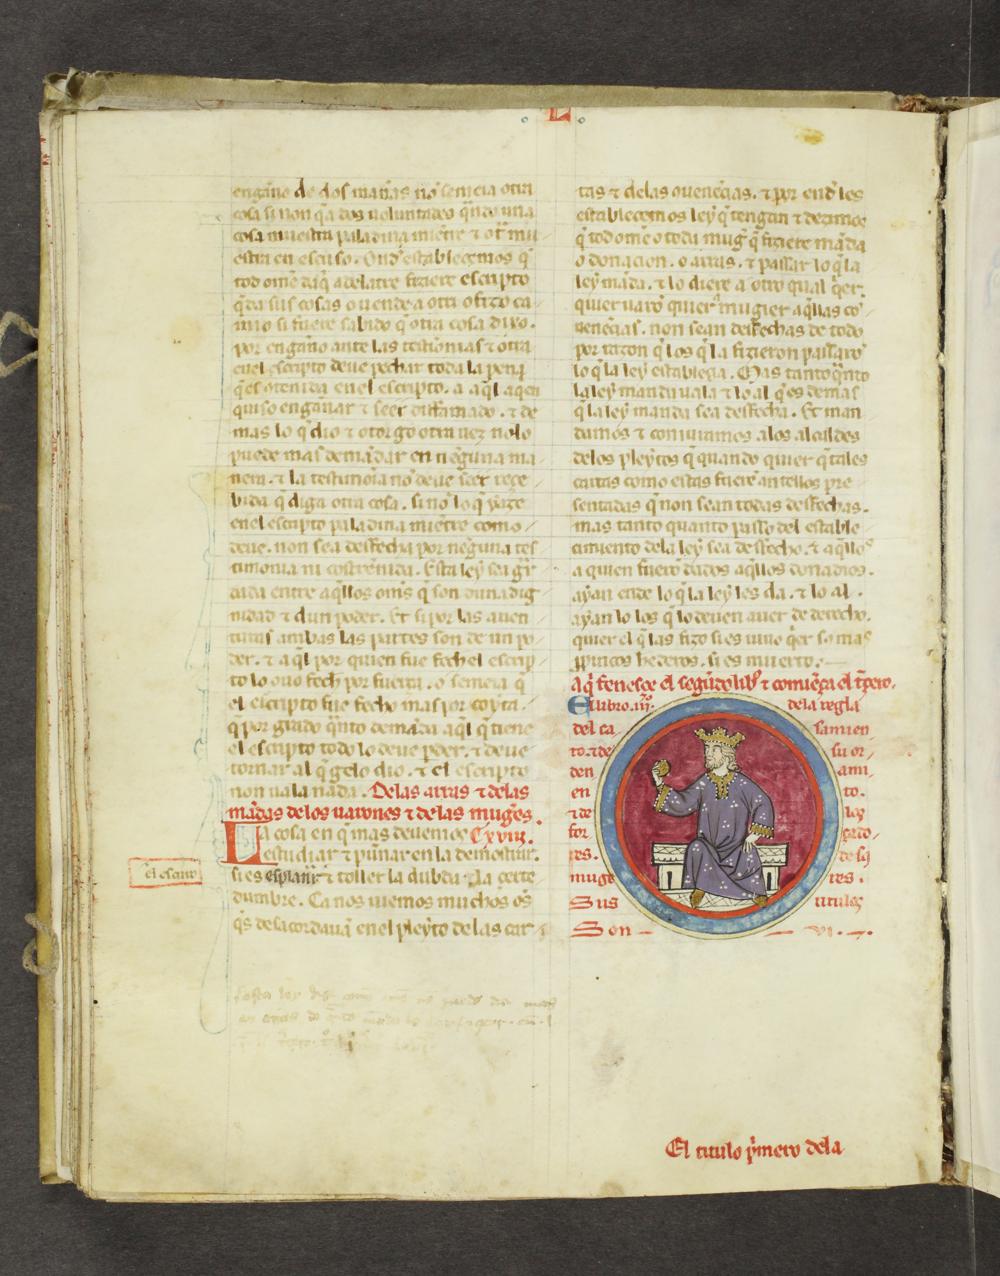 L
engaño de dos mañas no semeia otra
cosa si non q̃ a dos uoluntades q̃ndo una
cosa muestra paladina miẽtre ⁊ otˢ mu
estra en escuso. Ond establecemos q̃
tod omẽ daq̃ adelatre fiziere escripto
q̃ da sus cosas o uende a otri o fizo ca
mio si fuere sabido q̃ otra cosa dixo.
por engaño ante las testimonias ⁊ otra
en el escripto deue pechar toda la pena
q̃ es otenida en el escripto. a aq̃l a qen
quiso engañar ⁊ seer diffamado. ⁊ de
mas lo q̃ dio ⁊ otorgo otra uez nolo
puede mas demãdar en nẽguna ma
nera. ⁊ la testimoĩa nõ deue seer reçe
bida q̃ diga otra cosa. si nõ lo q̃ yaze
en el escripto paladina miẽtre como
deue. non sea desfecha por neguna tes
timonia ni costrenida. Esta ley sea gˢr
dada entre aq̃llos om̃s q̃ son duna dig
nidad ⁊ dun poder. Et si por las auen
turas ambas las partes son de un po
der. ⁊ aq̃l por quien fue fech el escrip
to lo ouo fech por fuerça. o semeia q̃
el escripto fue fecho mas por coyta.
q̃ por grado q̃nto demãda aq̃l q̃ tiene
el escripto todo lo deue ꝑder. ⁊ deue
tornar al q̃ gelo dio. ⁊ el escripto
non uala nada. Delas arras ⁊ delas
mãdas de los uarones ⁊ delas mugẽs.
La cosa en q̃ mas deuemos Cxviii.
estudiar ⁊ pũnar en la demostrar.
si es esplanar ⁊ toller la dubda ⁊ la certe
dumbre. Ca nos uiemos muchos os̃
q̃s desacordauã en el pleyto de las car
tas ⁊ delas auenẽças. ⁊ por end les
establecemos ley q̃ tengan ⁊ dezimos
q̃ tod omẽ o toda mug̃ q̃ fiziere mãda
o donacion. o arras. ⁊ passar lo q̃ la
ley mãda. ⁊ lo diere a otro qual q̃er.
quier uarõ quier mugier aq̃llas co
uenẽças. non sean desfechas de todo
por razon q̃ los q̃ la fizieron passarõ
lo q̃ la ley estableça. Mas tanto q̃nto
la ley manda uala ⁊ lo al q̃ es demas
q̃ la ley manda sea desfecha. Et man
damos ⁊ coniuramos alos alcaldes
delos pleytos q̃ quando quier q̃ tales
cartas como estas fuerẽ antellos pre
sentadas q̃ non sean todas desfechas.
mas tanto quanto passa del estable
cimiento dela ley sea desfecho. ⁊ aq̃llos
a quien fuerõ dados aq̃llos donadios.
ayan ende lo q̃ la ley les da. ⁊ lo al.
ayan lo los q̃ lo deuen auer de derecho.
quier el q̃ las fizo si es uiuo q̃er so mas
ꝓpincos hederos. si es muerto.
Aq̃ fenesçe el segũdo libˢ ⁊ comiẽça el tˢçero.
El libro .iii. dela regla
del casamien
to. ⁊ de su or
den ami
en to.
⁊ de los
for çado
res. de sq̃
muge res.
Sus titulos
Son VI.
el esano
El titulo pˢmero dela